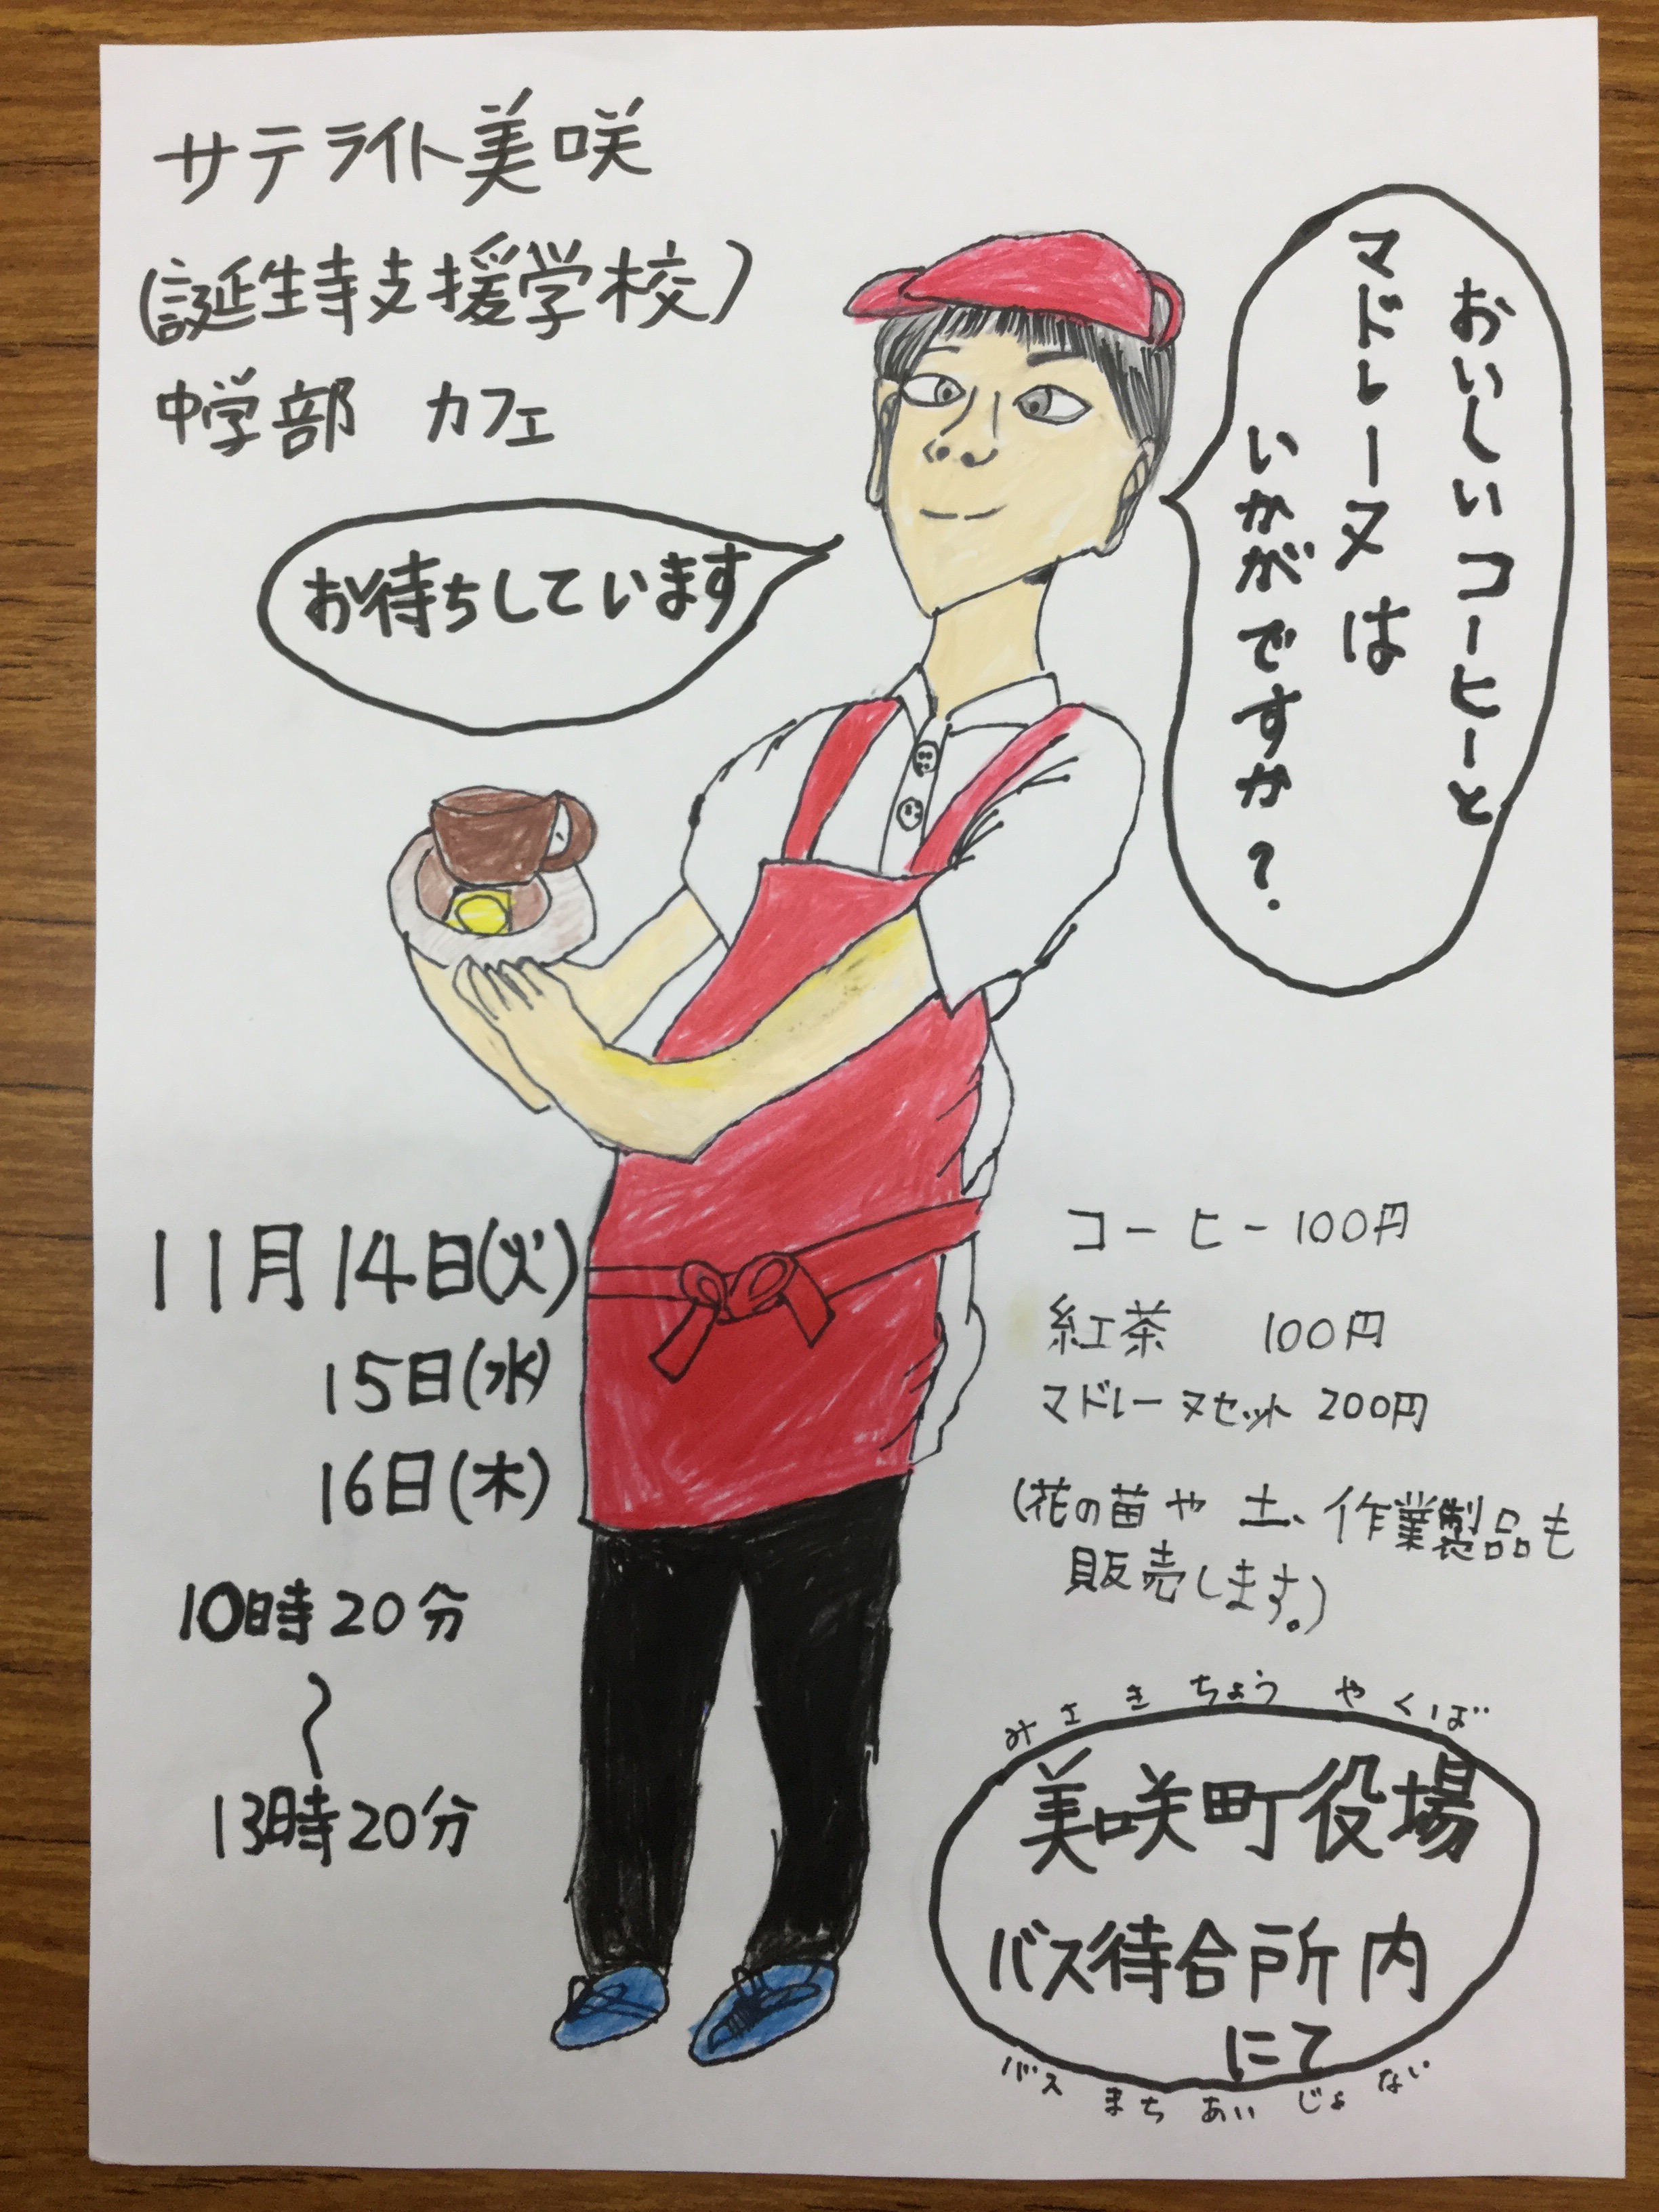 サテライト美咲
(誕生寺支援学校)
中学部 カフェ
おいしいコーヒーと
マドレーヌは
いかがですか?
お待ちしています
11月14日(火)
15日(水)
16日(木)
10時20分
〜
13時20分
コーヒー100円
紅茶 100円
マドレーヌセット 200円
(花の苗や 土、作業製品も
販売します。)
みさきちょうやくば
美咲町役場
バス待合所内
にて
バスまちあいじょない